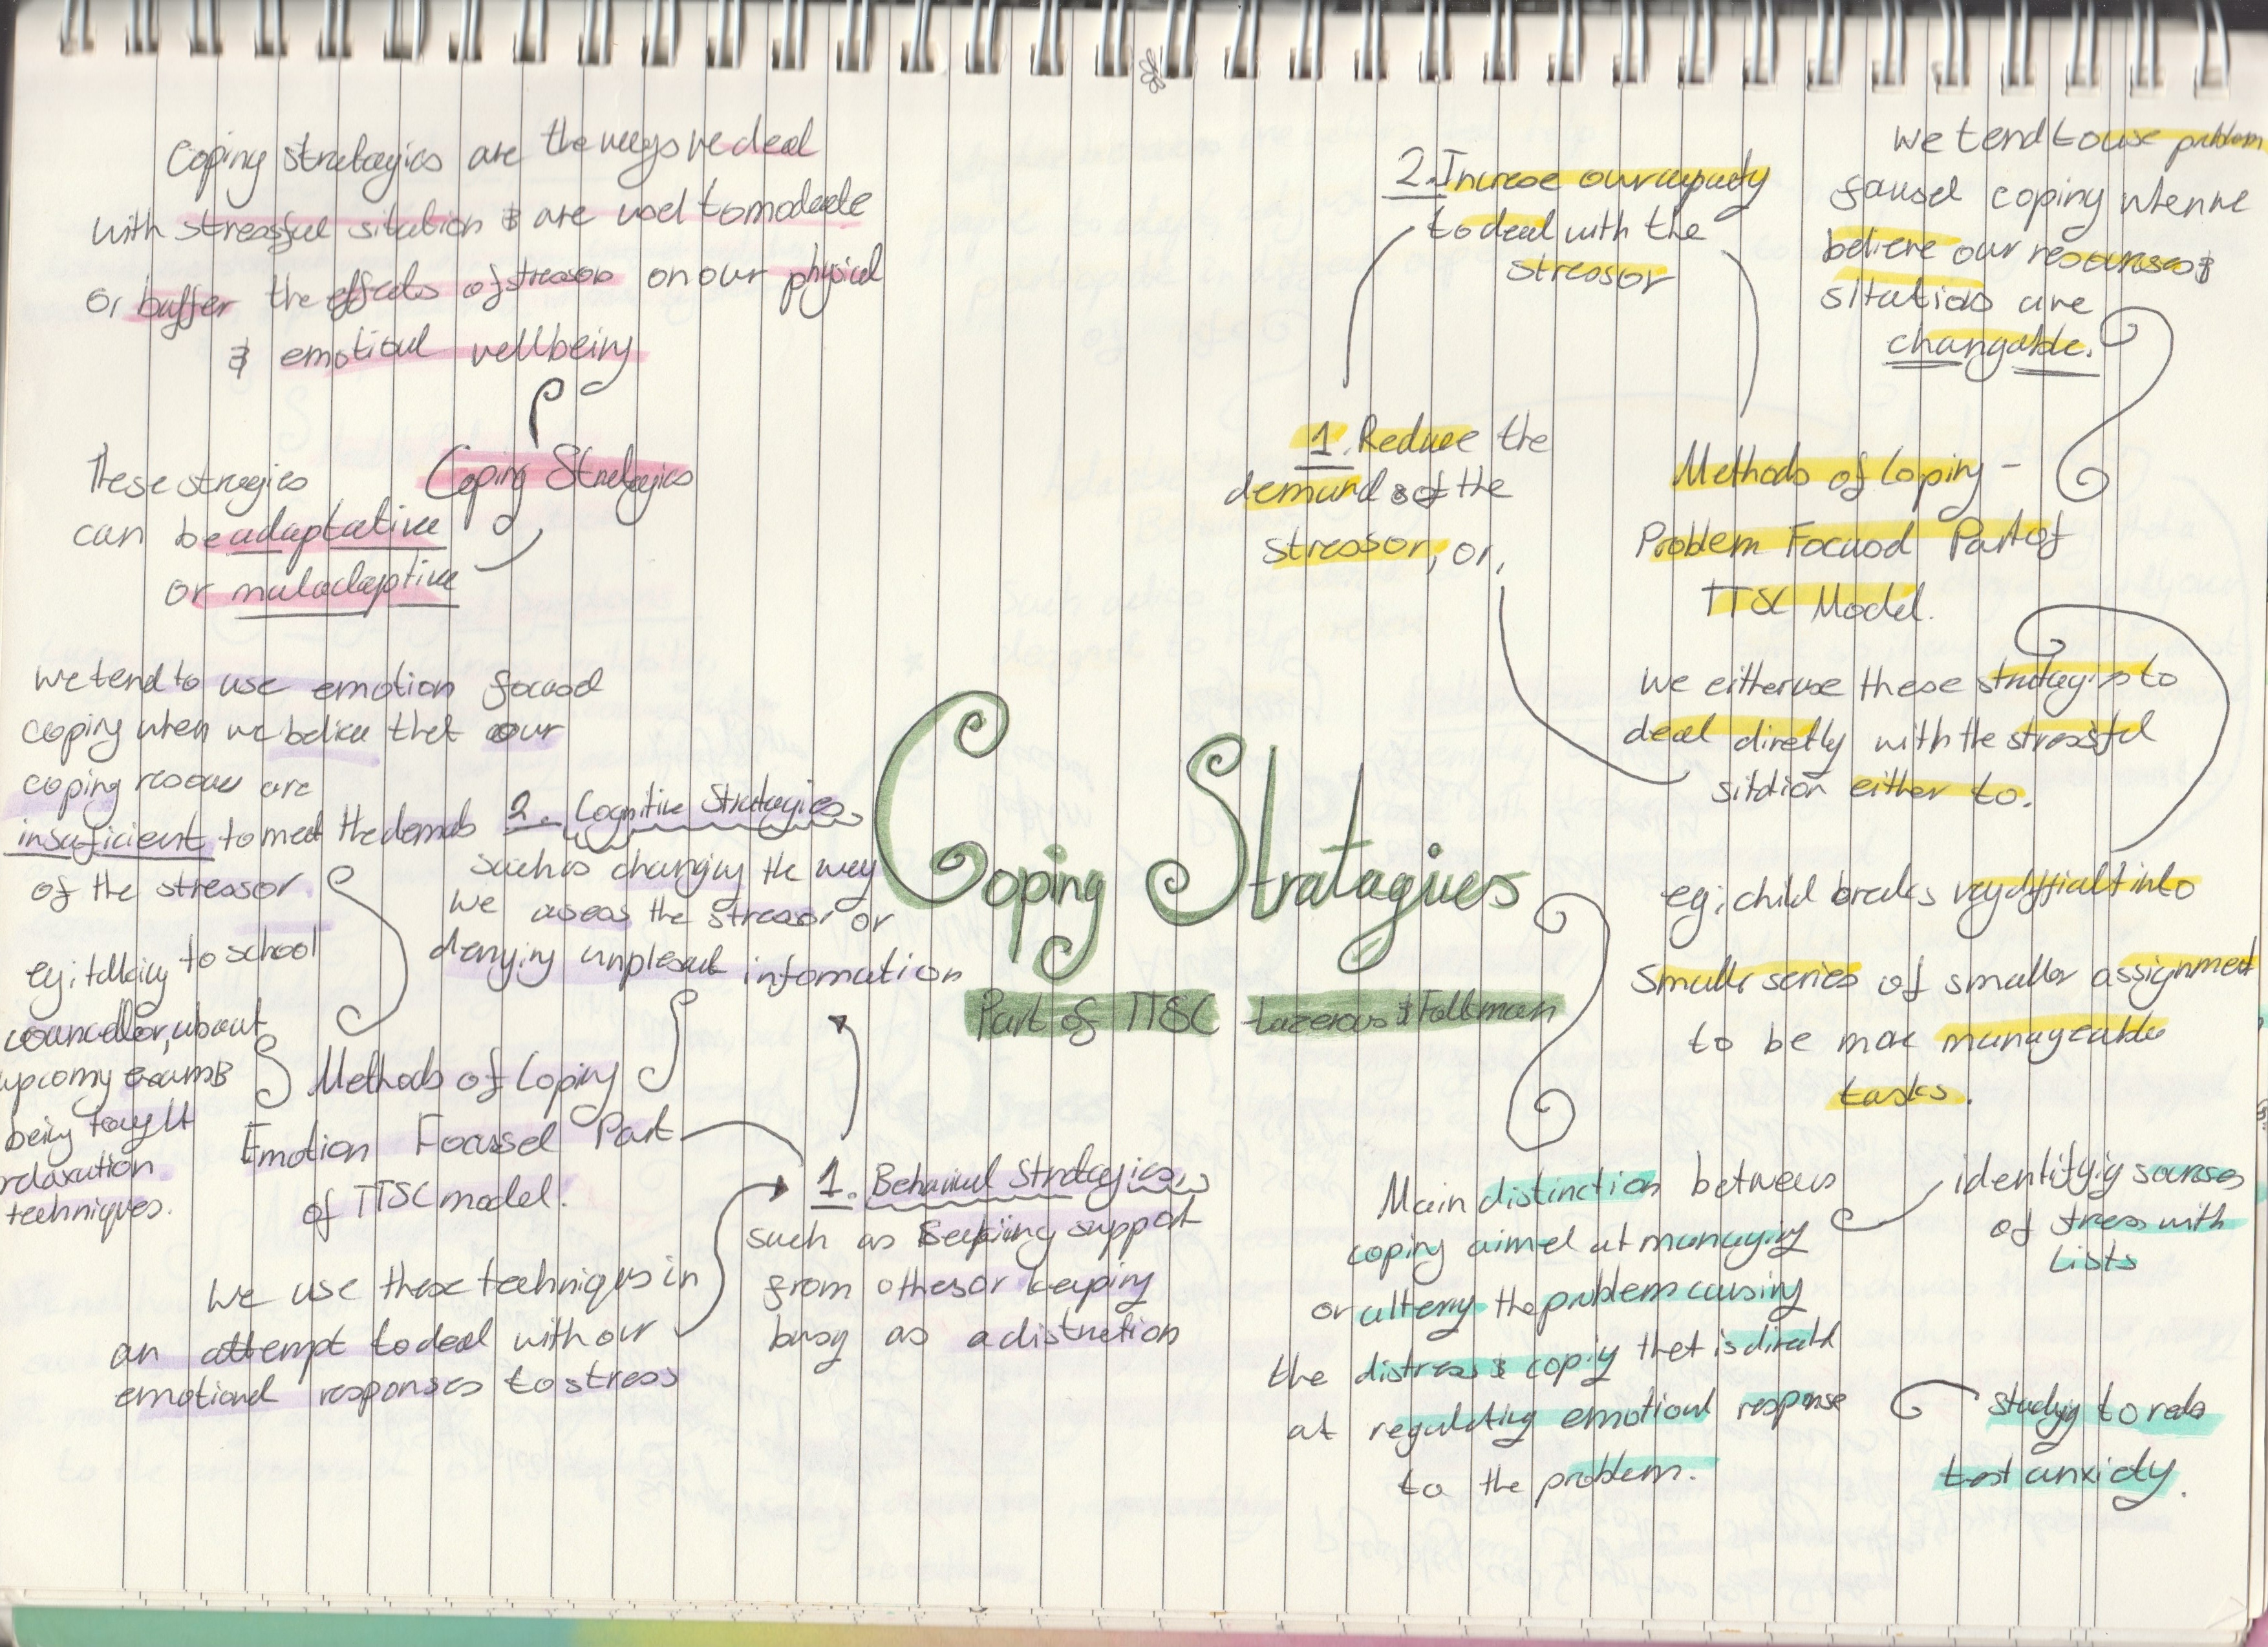 Coping Stratagies are the ways we deal
with stressful sitation & are used to moderate
or buffer the effects of stressors on our physical
& emotional wellbeing
Coping Stratagies
These stragies
can be adaptative
or maladaptive
We tend to use emotion focused
coping when we believe that our
coping resouces are
insufficient to meet the demads
of the stressor.
eg; talking to school
councellor, about
upcoming exams &
being taught
relaxation
techniques.
2. Cognitive Stratagies
such as changing the way
we assess the stressor or
denying unplesant infomation
Methods of Coping
Emotion Focussed Part
of TTSC model.
We use these techniques in
an attempt to deal with our
emotional responses to stress
1. Behavioul Stratagies
such as Seeking support
from others or keeping
busy as a distraction
Coping Stratagies
Part of TTSC Lazerous & Folkman
2. Increase our capacity
to deal with the
stressor
1. Reduce the
demands of the
stressor, or,
We tend to use problem
fousel coping when we
believe our resourses &
sitations are
changable.
Methods of Coping -
Problem Focused Part of
TTSC Model.
We either use these stratagies to
deal diretly with the stressful
sitation either to.
eg; child breaks very difficalt into
smaller series of smaller assignment
to be more manageable
tasks.
Main distinction between
coping aimed at managing
or altering the problem causing
the distress & coping that is direct
at regulating emotional response
to the problem.
identifyig sourses
of stress with
Lists
studying to
test anxiety.